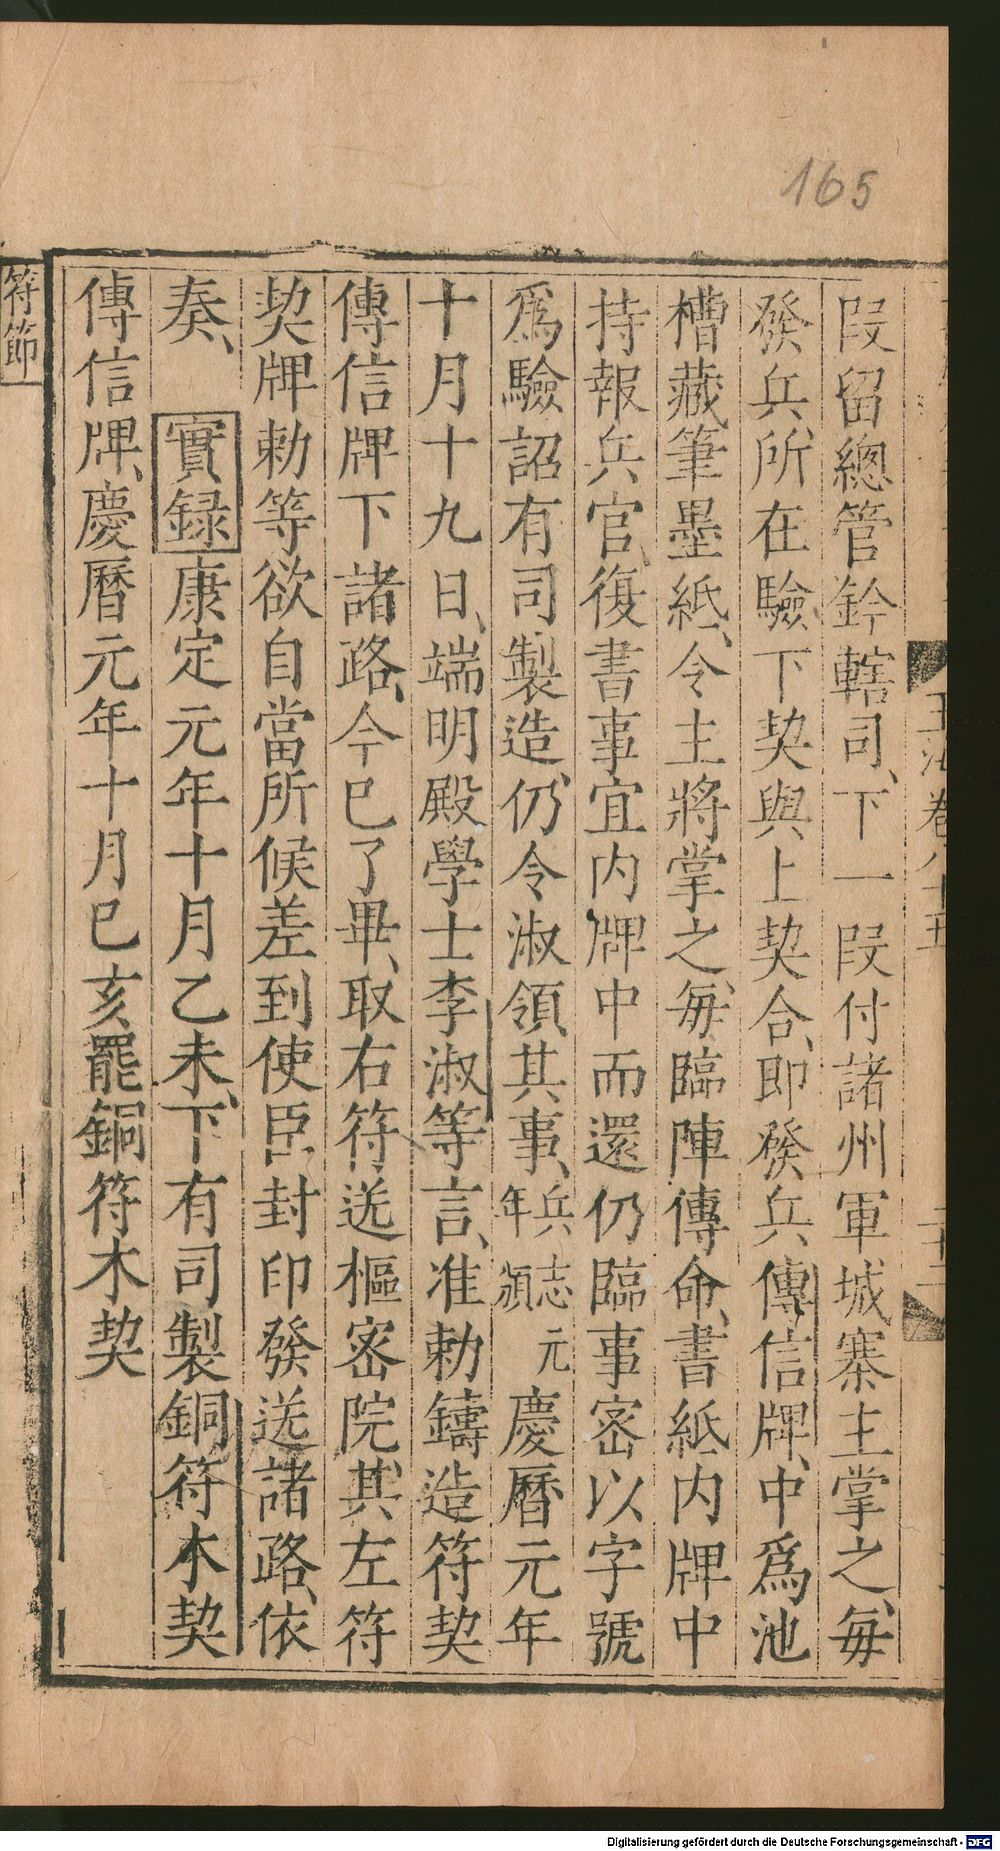 165
段留總管鈐轄司、下一段付諸州軍城寨主掌之、每
發兵、所在驗下契與上契合、即發兵、傳信牌、中爲池
槽、藏筆墨紙、令主將掌之、每臨陣傳命、書紙内牌中
持報兵官、復書事宜内牌中而還、仍臨事密以字號
爲驗、詔有司製造、仍令淑領其事、兵志元年頒慶曆元年
十月十九日、端明殿學士李淑等言、准勅鑄造符契
傳信牌下諸路、今已了畢、取右符送樞密院、其左符
契牌勅等欲自當所候差到使臣、封印發送諸路、依
奏、實録康定元年十月乙未、下有司製銅符木契
傳信牌、慶曆元年十月已亥罷銅符木契
符節
Digitalisierung gefördert durch die Deutsche Forschungsgemeinschaft - DFG